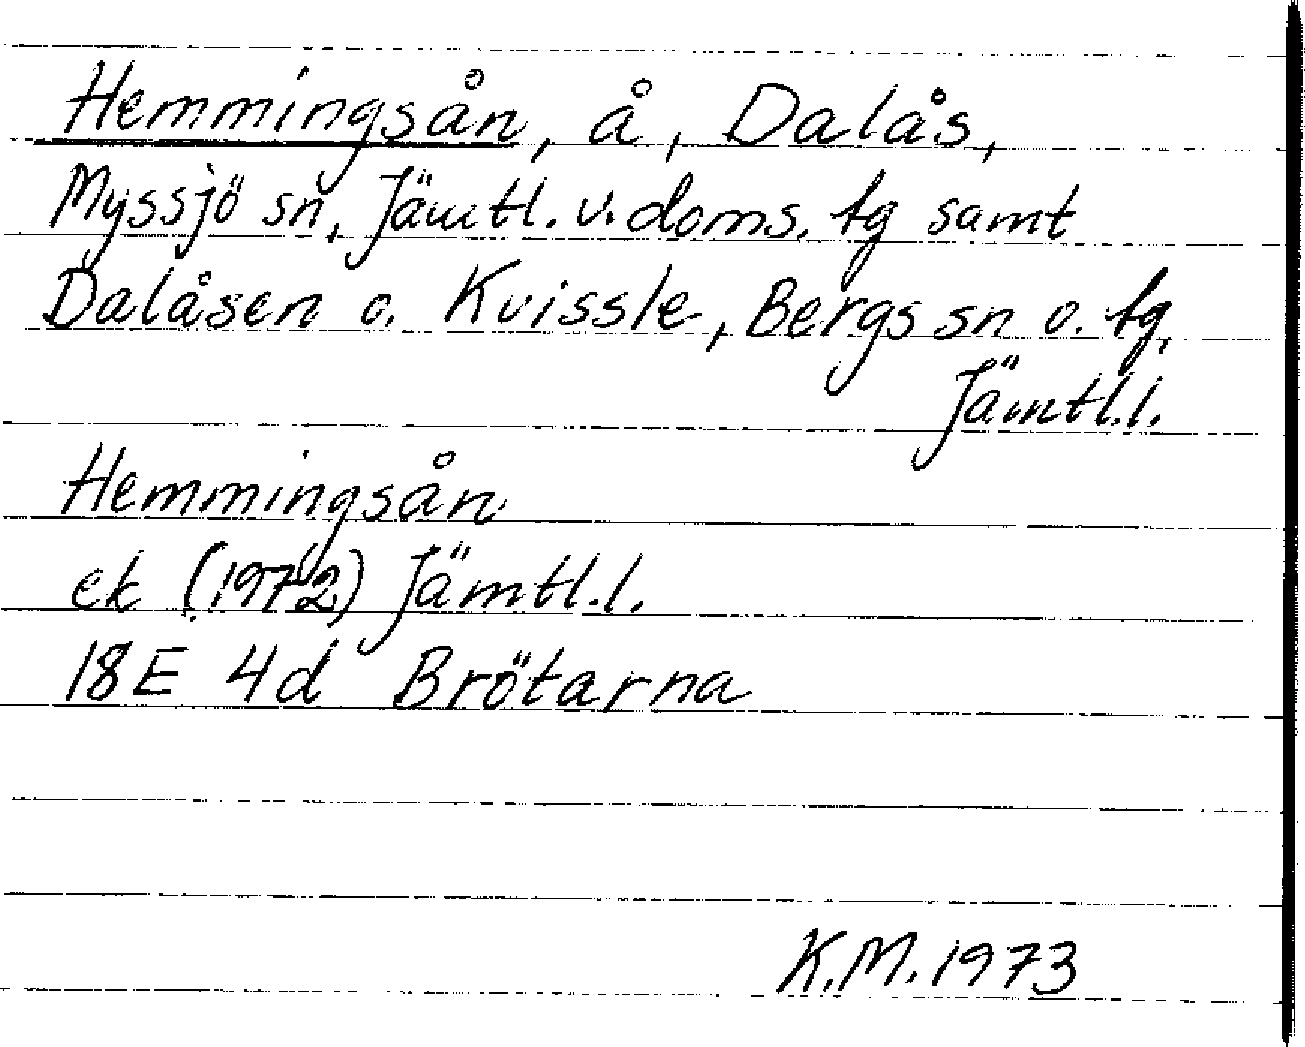 Hemmingsån, å, Dalås,
Myssjö sn, Jämtl. v. doms. tg samt
Dalåsen o. Kvissle, Bergs sn o. tg,
Jämtl.l.
Hemmingsån
ek (1972) Jämtl.l.
18E 4d Brötarna
K.M. 1973